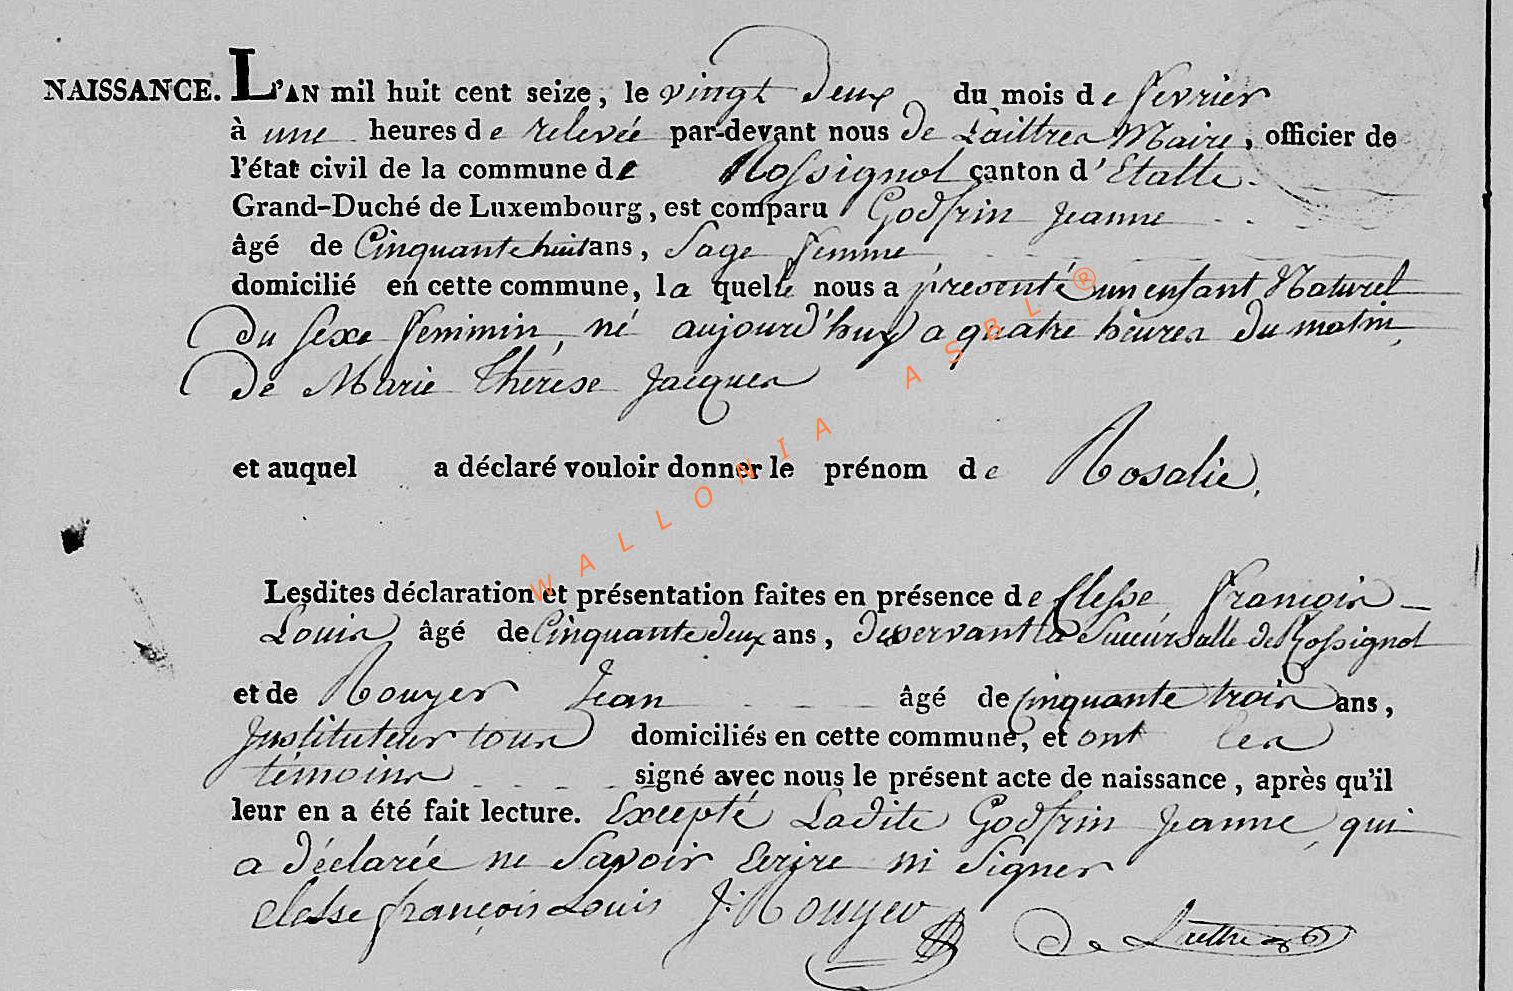 NAISSANCE. L'AN mil huit cent seize, le vingt Deux du mois de fevrier
à une heures de relevée par-devant nous De Laittres Maire, officier de
l'état civil de la commune de Rossignol canton d'Etalle
Grand-Duché de Luxembourg, est comparu Godfrin Jeanne
âgé de Cinquante huit ans, Sage femme
domicilié en cette commune, la quelle nous a présenté un enfant Naturel
Du sexe feminin, né aujourd'huy a quatre heures Du matin,
De Marie Thérèse Jacques
et auquel a déclaré vouloir donner le prénom de Rosalie,
Lesdites déclaration et présentation faites en présence de Clesse François
Louis âgé de Cinquante deux ans, desservant la Succursalle de Rossignol
et de Rouyer Jean âgé de Cinquante trois ans,
Instituteur tous domiciliés en cette commune, et ont les
témoins signé avec nous le présent acte de naissance, après qu'il
leur en a été fait lecture. Excepté Ladite Godfrin Jeanne, qui
a déclarée ne Savoir Ecrire ni Signer
Clesse françois Louis J: Rouyer De Laittres
WALLONIA ASBL ®